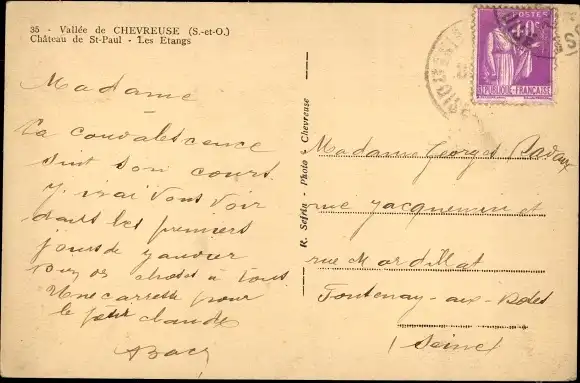 35 - Vallée de CHEVREUSE (S.-et-O.)
Château de St-Paul - Les Etangs
Madame
La convalescence
suit son cours.
J'irai vous voir
dans les premiers
jours de janvier
choses à tous
Une caresse pour
le petit claude
R. Sefrin - Photo - Chevreuse
POSTES
REPUBLIQUE FRANÇAISE
Madame Georges
rue Jacquemin et
rue Mordillat
Fontenay-aux-Roses
(Seine)